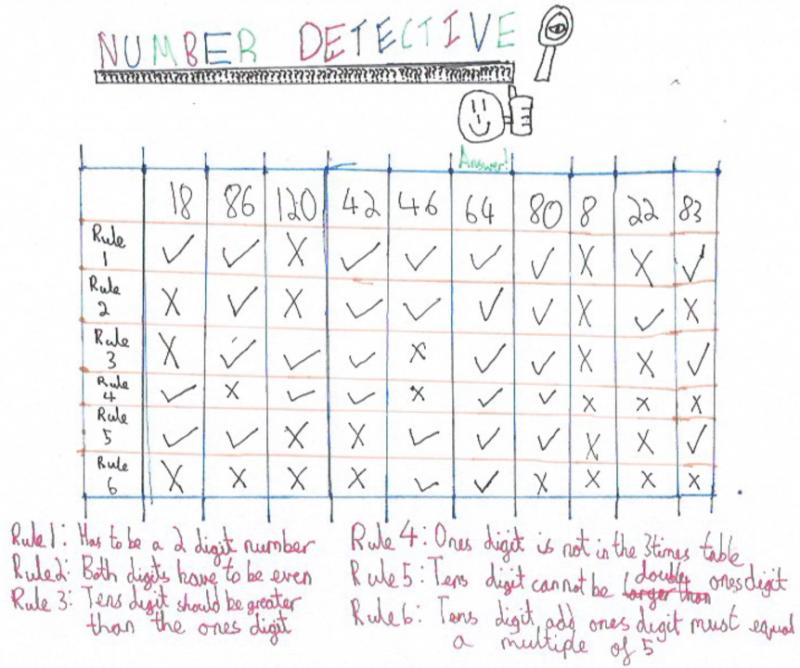 NUMBER DETECTIVE
Answer!
18 86 120 42 46 64 80 8 22 83
Rule 1 ✓ ✓ X ✓ ✓ ✓ ✓ X X ✓
Rule 2 X ✓ X ✓ ✓ ✓ ✓ X ✓ X
Rule 3 X ✓ ✓ ✓ X ✓ ✓ X X ✓
Rule 4 ✓ X ✓ ✓ X ✓ ✓ X X X
Rule 5 ✓ ✓ X X ✓ ✓ ✓ X X ✓
Rule 6 X X X X ✓ ✓ X X X X
Rule 1: Has to be a 2 digit number
Rule 2: Both digits have to be even
Rule 3: Tens digit should be greater
than the ones digit
Rule 4: Ones digit is not in the 3 times table
Rule 5: Tens digit cannot be double ones digit
Rule 6: Tens digit add ones digit must equal
a multiple of 5